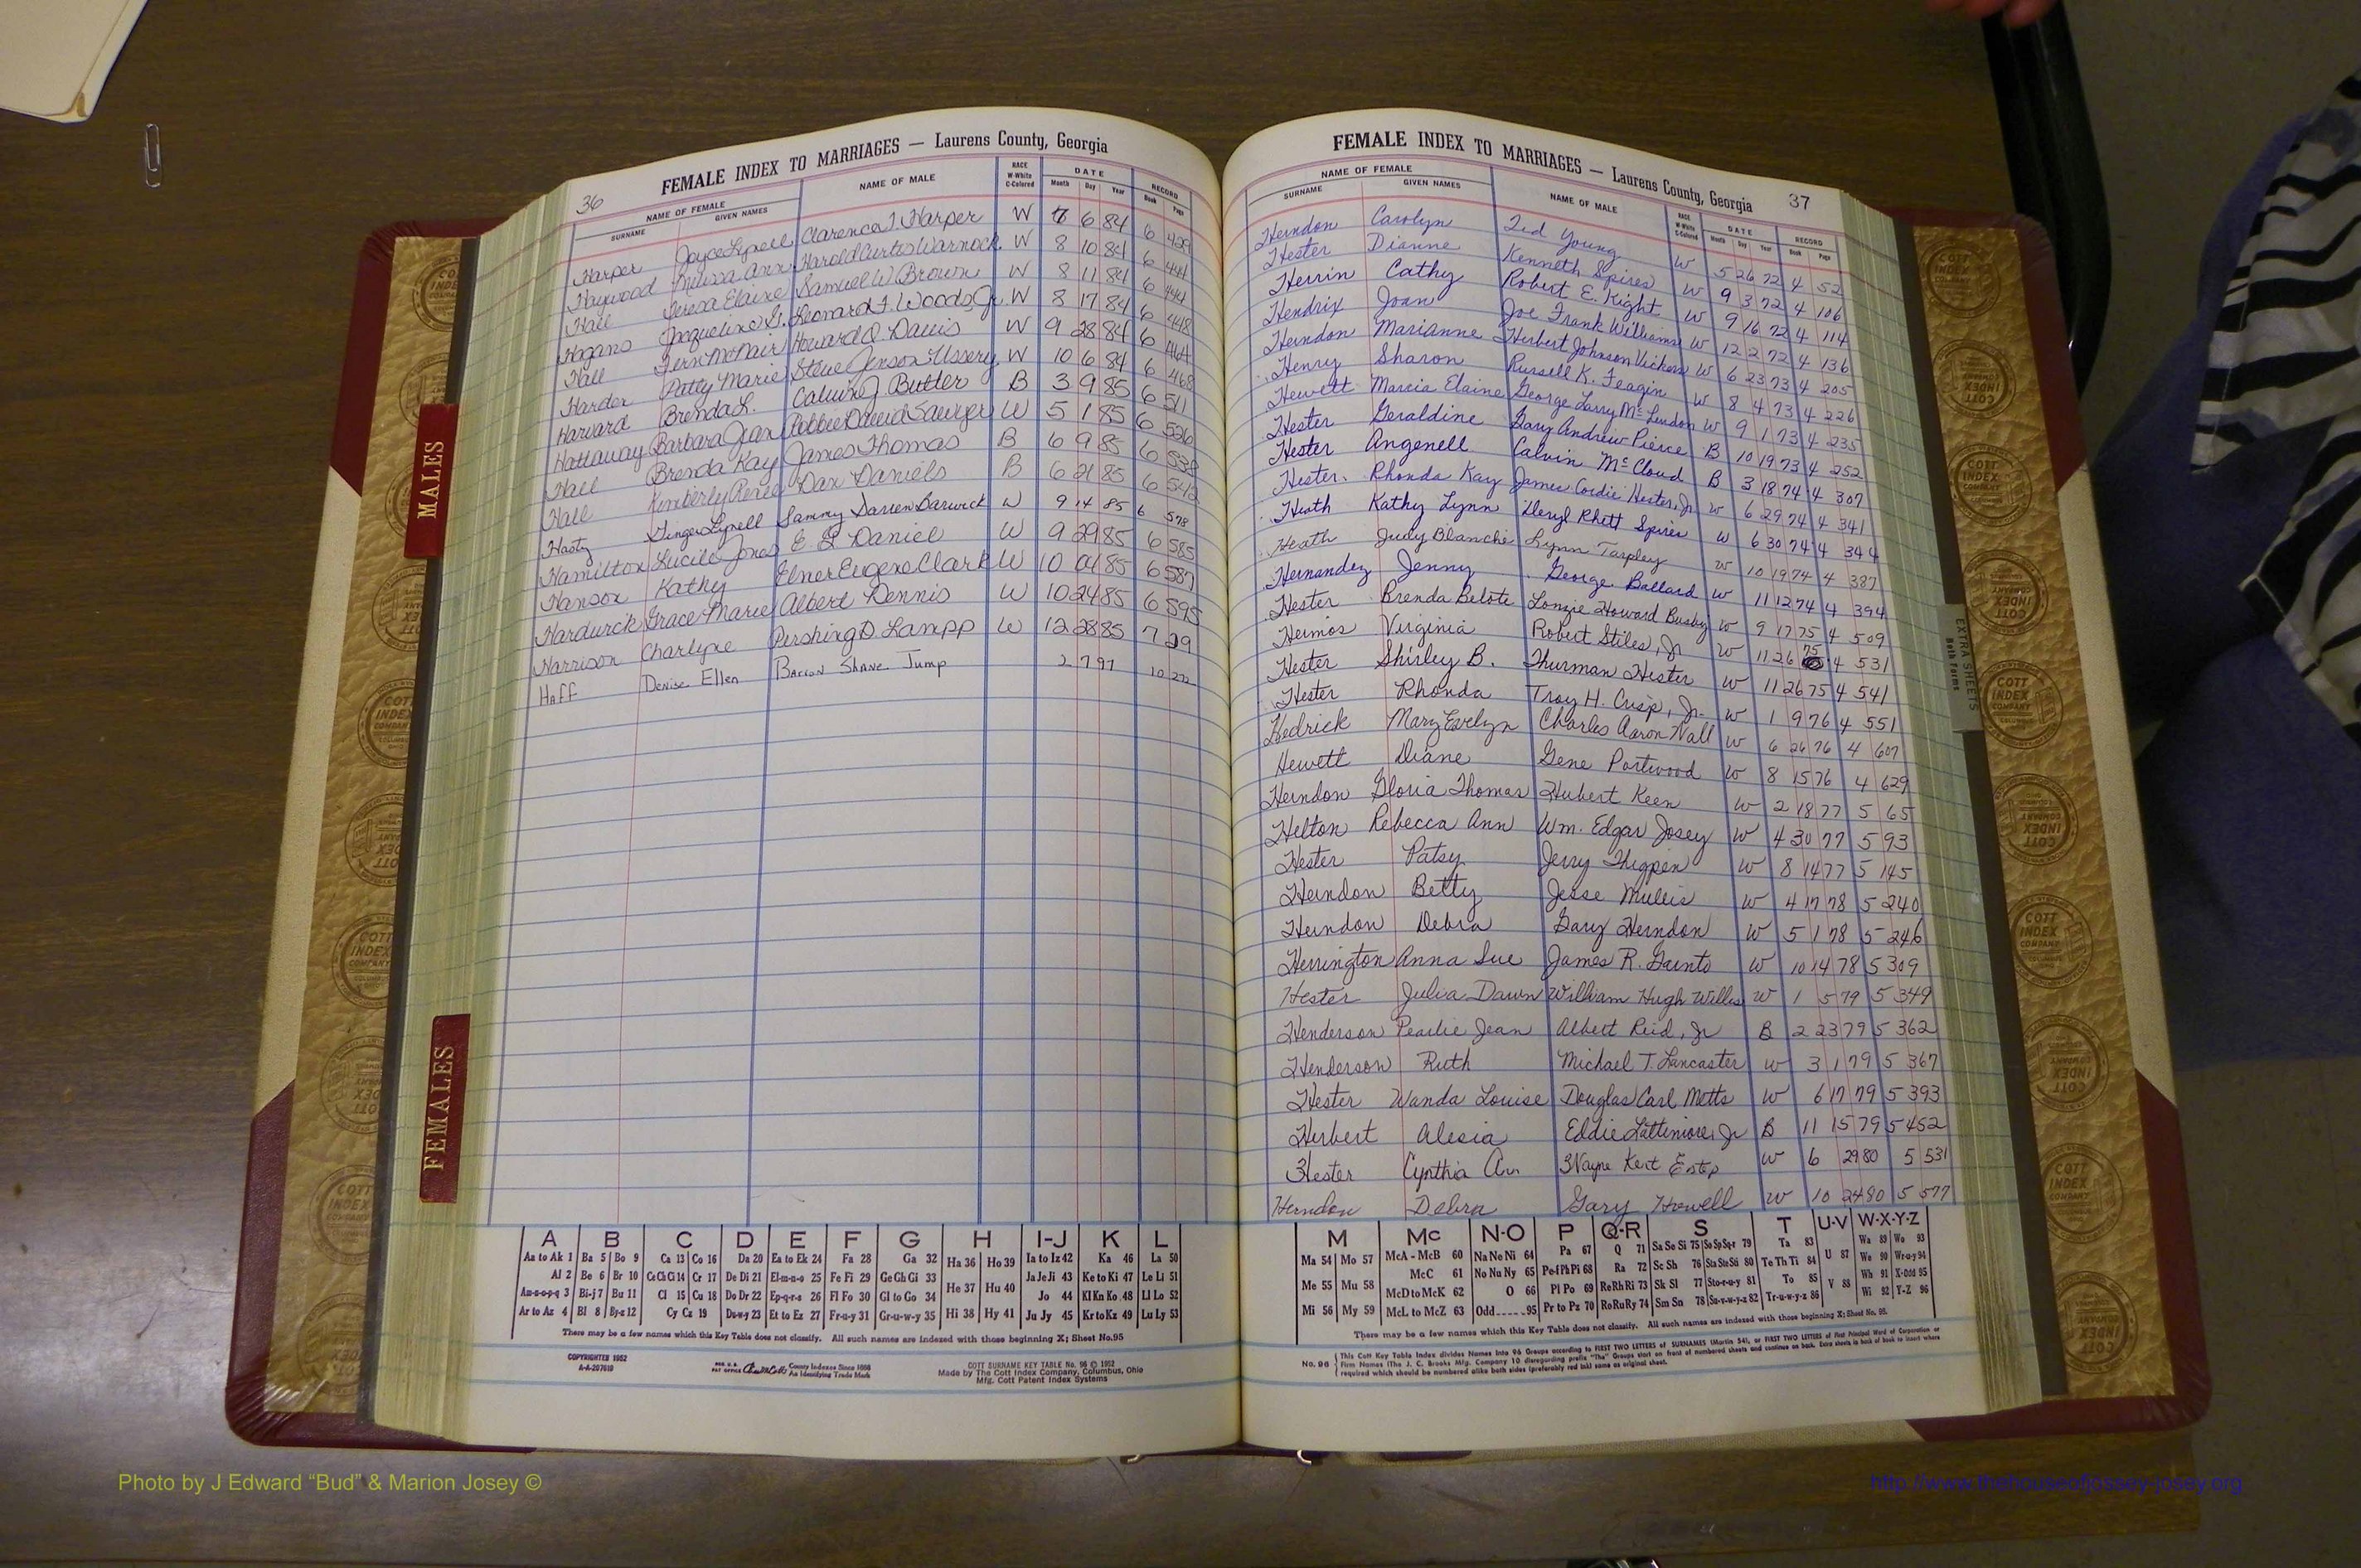 36
FEMALE INDEX TO MARRIAGES — Laurens County, Georgia
NAME OF FEMALE NAME OF MALE RACE W-White C-Colored DATE RECORD
SURNAME GIVEN NAMES Month Day Year Book Page
Harper Joyce Lynell Clarence T. Harper W 6 84 6 429
Haywood Melissa Ann Harold Curtis Warnock W 8 10 84 6 444
Hall Teresa Elaine Samuel W Brown W 8 11 84 6 444
Hagans Jacqueline G. Leonard F. Woods, Jr. W 8 17 84 6 448
Hall Fern McNair Howard O Davis W 9 28 84 6 464
Harden Patty Marie Steve Jenson Ussery W 10 6 84 6 468
Harvard Brenda L. Calvin J. Butler B 3 9 85 6 511
Hattaway Barbara Jean Robbie David Sawyer W 5 1 85 6 526
Hall Brenda Kay James Thomas B 6 9 85 6 538
Hall Kimberly Renee Dan Daniels B 6 21 85 6 542
Hasty Ginger Lynell Sammy Darren Barwick W 9 14 85 6 578
Hamilton Lucile Jones E. L. Daniel W 9 29 85 6 585
Hanson Kathy Elner Eugene Clark W 10 04 85 6 587
Hardwick Grace Marie Albert Dennis W 10 24 85 6 595
Harrison Charlyne Pershing D. Lampp W 12 28 85 7 29
Haff Denise Ellen Barron Shane Jump 2 7 97 10 272
MALES
FEMALES
A B C D E F G H I-J K L
Aa to Ak 1 Ba 5 Bo 9 Ca 13 Co 16 Da 20 Ea to Ek 24 Fa 28 Ga 32 Ha 36 Ho 39 Ia to Iz 42 Ka 46 La 50
Al 2 Be 6 Br 10 Ce Ch Ci 14 Cr 17 De Di 21 El-m-n-o 25 Fe Fi 29 Ge Gh Gi 33 He 37 Hu 40 Ja Je Ji 43 Ke to Ki 47 Le Li 51
Am-n-o-p-q 3 Bi-j 7 Bu 11 Cl 15 Cu 18 Do Dr 22 Ep-q-r-s 26 Fl Fo 30 Gl to Go 34 Jo 44 Kl Kn Ko 48 Ll Lo 52
Ar to Az 4 Bl 8 By-z 12 Cy Cz 19 Du-w-y 23 Et to Ez 27 Fr-u-y 31 Gr-u-w-y 35 Hi 38 Hy 41 Ju Jy 45 Kr to Kz 49 Lu Ly 53
There may be a few names which this Key Table does not classify. All such names are indexed with those beginning X; Sheet No. 95
COPYRIGHTED 1952
A-A-207610
REG. U.S. PAT OFFICE County Indexes Since 1888
An Identifying Trade Mark
COTT SURNAME KEY TABLE No. 96 © 1952
Made by The Cott Index Company, Columbus, Ohio
Mfg. Cott Patent Index Systems
FEMALE INDEX TO MARRIAGES — Laurens County, Georgia 37
NAME OF FEMALE NAME OF MALE RACE W-White C-Colored DATE RECORD
SURNAME GIVEN NAMES Month Day Year Book Page
Herndon Carolyn Ted Young W 5 26 72 4 52
Hester Dianne Kenneth Spires W 9 3 72 4 106
Herrin Cathy Robert E. Kight W 9 16 72 4 114
Hendrix Joan Joe Frank Williams W 12 2 72 4 136
Herndon Marianne Herbert Johnson Vickers W 6 23 73 4 205
Henry Sharon Russell K. Feagin W 8 4 73 4 226
Hewett Marcia Elaine George Larry McLendon W 9 1 73 4 235
Hester Geraldine Gary Andrew Pierce B 10 19 73 4 252
Hester Angenell Calvin McCloud B 3 18 74 4 307
Hester Rhonda Kay James Cordie Hester, Jr W 6 29 74 4 341
Heath Kathy Lynn Deryl Rhett Spires W 6 30 74 4 344
Heath Judy Blanche Lynn Tarpley W 10 19 74 4 387
Hernandez Jenny George Ballard W 11 12 74 4 394
Hester Brenda Belote Lonzie Howard Busby W 9 17 75 4 509
Hermos Virginia Robert Stiles, Jr W 11 26 75 4 531
Hester Shirley B. Thurman Hester W 11 26 75 4 541
Hester Rhonda Troy H. Crisp, Jr. W 1 9 76 4 551
Hedrick Mary Evelyn Charles Aaron Wall W 6 26 76 4 607
Hewett Diane Gene Portwood W 8 15 76 4 629
Herndon Gloria Thomas Hubert Keen W 2 18 77 5 65
Helton Rebecca Ann Wm. Edgar Josey W 4 30 77 5 93
Hester Patsy Jerry Thigpen W 8 14 77 5 145
Herndon Betty Jesse Mullis W 4 17 78 5 240
Herndon Debra Gary Herndon W 5 1 78 5 246
Herrington Anna Sue James R. Gainto W 10 14 78 5 309
Hester Julia Dawn William Hugh Willis W 1 5 79 5 349
Henderson Pearlie Jean Albert Reid, Jr B 2 23 79 5 362
Henderson Ruth Michael T. Lancaster W 3 1 79 5 367
Hester Wanda Louise Douglas Carl Metts W 6 17 79 5 393
Herbert Alesia Eddie Lattimore, Jr B 11 15 79 5 452
Hester Cynthia Ann Wayne Kent Estep W 6 29 80 5 531
Herndon Debra Gary Howell W 10 24 80 5 577
EXTRA SHEETS
Both Forms
M Mc N-O P Q-R S T U-V W-X-Y-Z
Ma 54 Mo 57 McA - McB 60 Na Ne Ni 64 Pa 67 Q 71 Sa Se Si 75 So Sp Sq-r 79 Ta 83 U 87 Wa 89 Wo 93
McC 61 No Nu Ny 65 Pe-f Ph Pi 68 Ra 72 Sc Sh 76 Sta Ste Sti 80 Te Th Ti 84 We 90 Wr-u-y 94
Me 55 Mu 58 McD to McK 62 O 66 Pl Po 69 Re Rh Ri 73 Sk Sl 77 Sto-r-u-y 81 To 85 V 88 Wh 91 X-Odd 95
Mi 56 My 59 McL to McZ 63 Odd 95 Pr to Pz 70 Ro Ru Ry 74 Sm Sn 78 Su-v-w-y-z 82 Tr-u-w-y-z 86 Wi 92 Y-Z 96
There may be a few names which this Key Table does not classify. All such names are indexed with those beginning X; Sheet No. 95.
No. 96 This Cott Key Table Index divides Names into 96 Groups according to FIRST TWO LETTERS of SURNAMES (Martin 54), or FIRST TWO LETTERS of First Principal Word of Corporation or
Firm Names (The J. C. Brooks Mfg. Company 10 disregarding prefix "The" Groups start on front of numbered sheets and continue on back. Extra sheets in back of book to insert where
required which should be numbered alike both sides (preferably red ink) same as original sheet.
COTT INDEX COMPANY COLUMBUS OHIO
Photo by J Edward “Bud” & Marion Josey ©
http://www.thehouseofjossey-josey.org